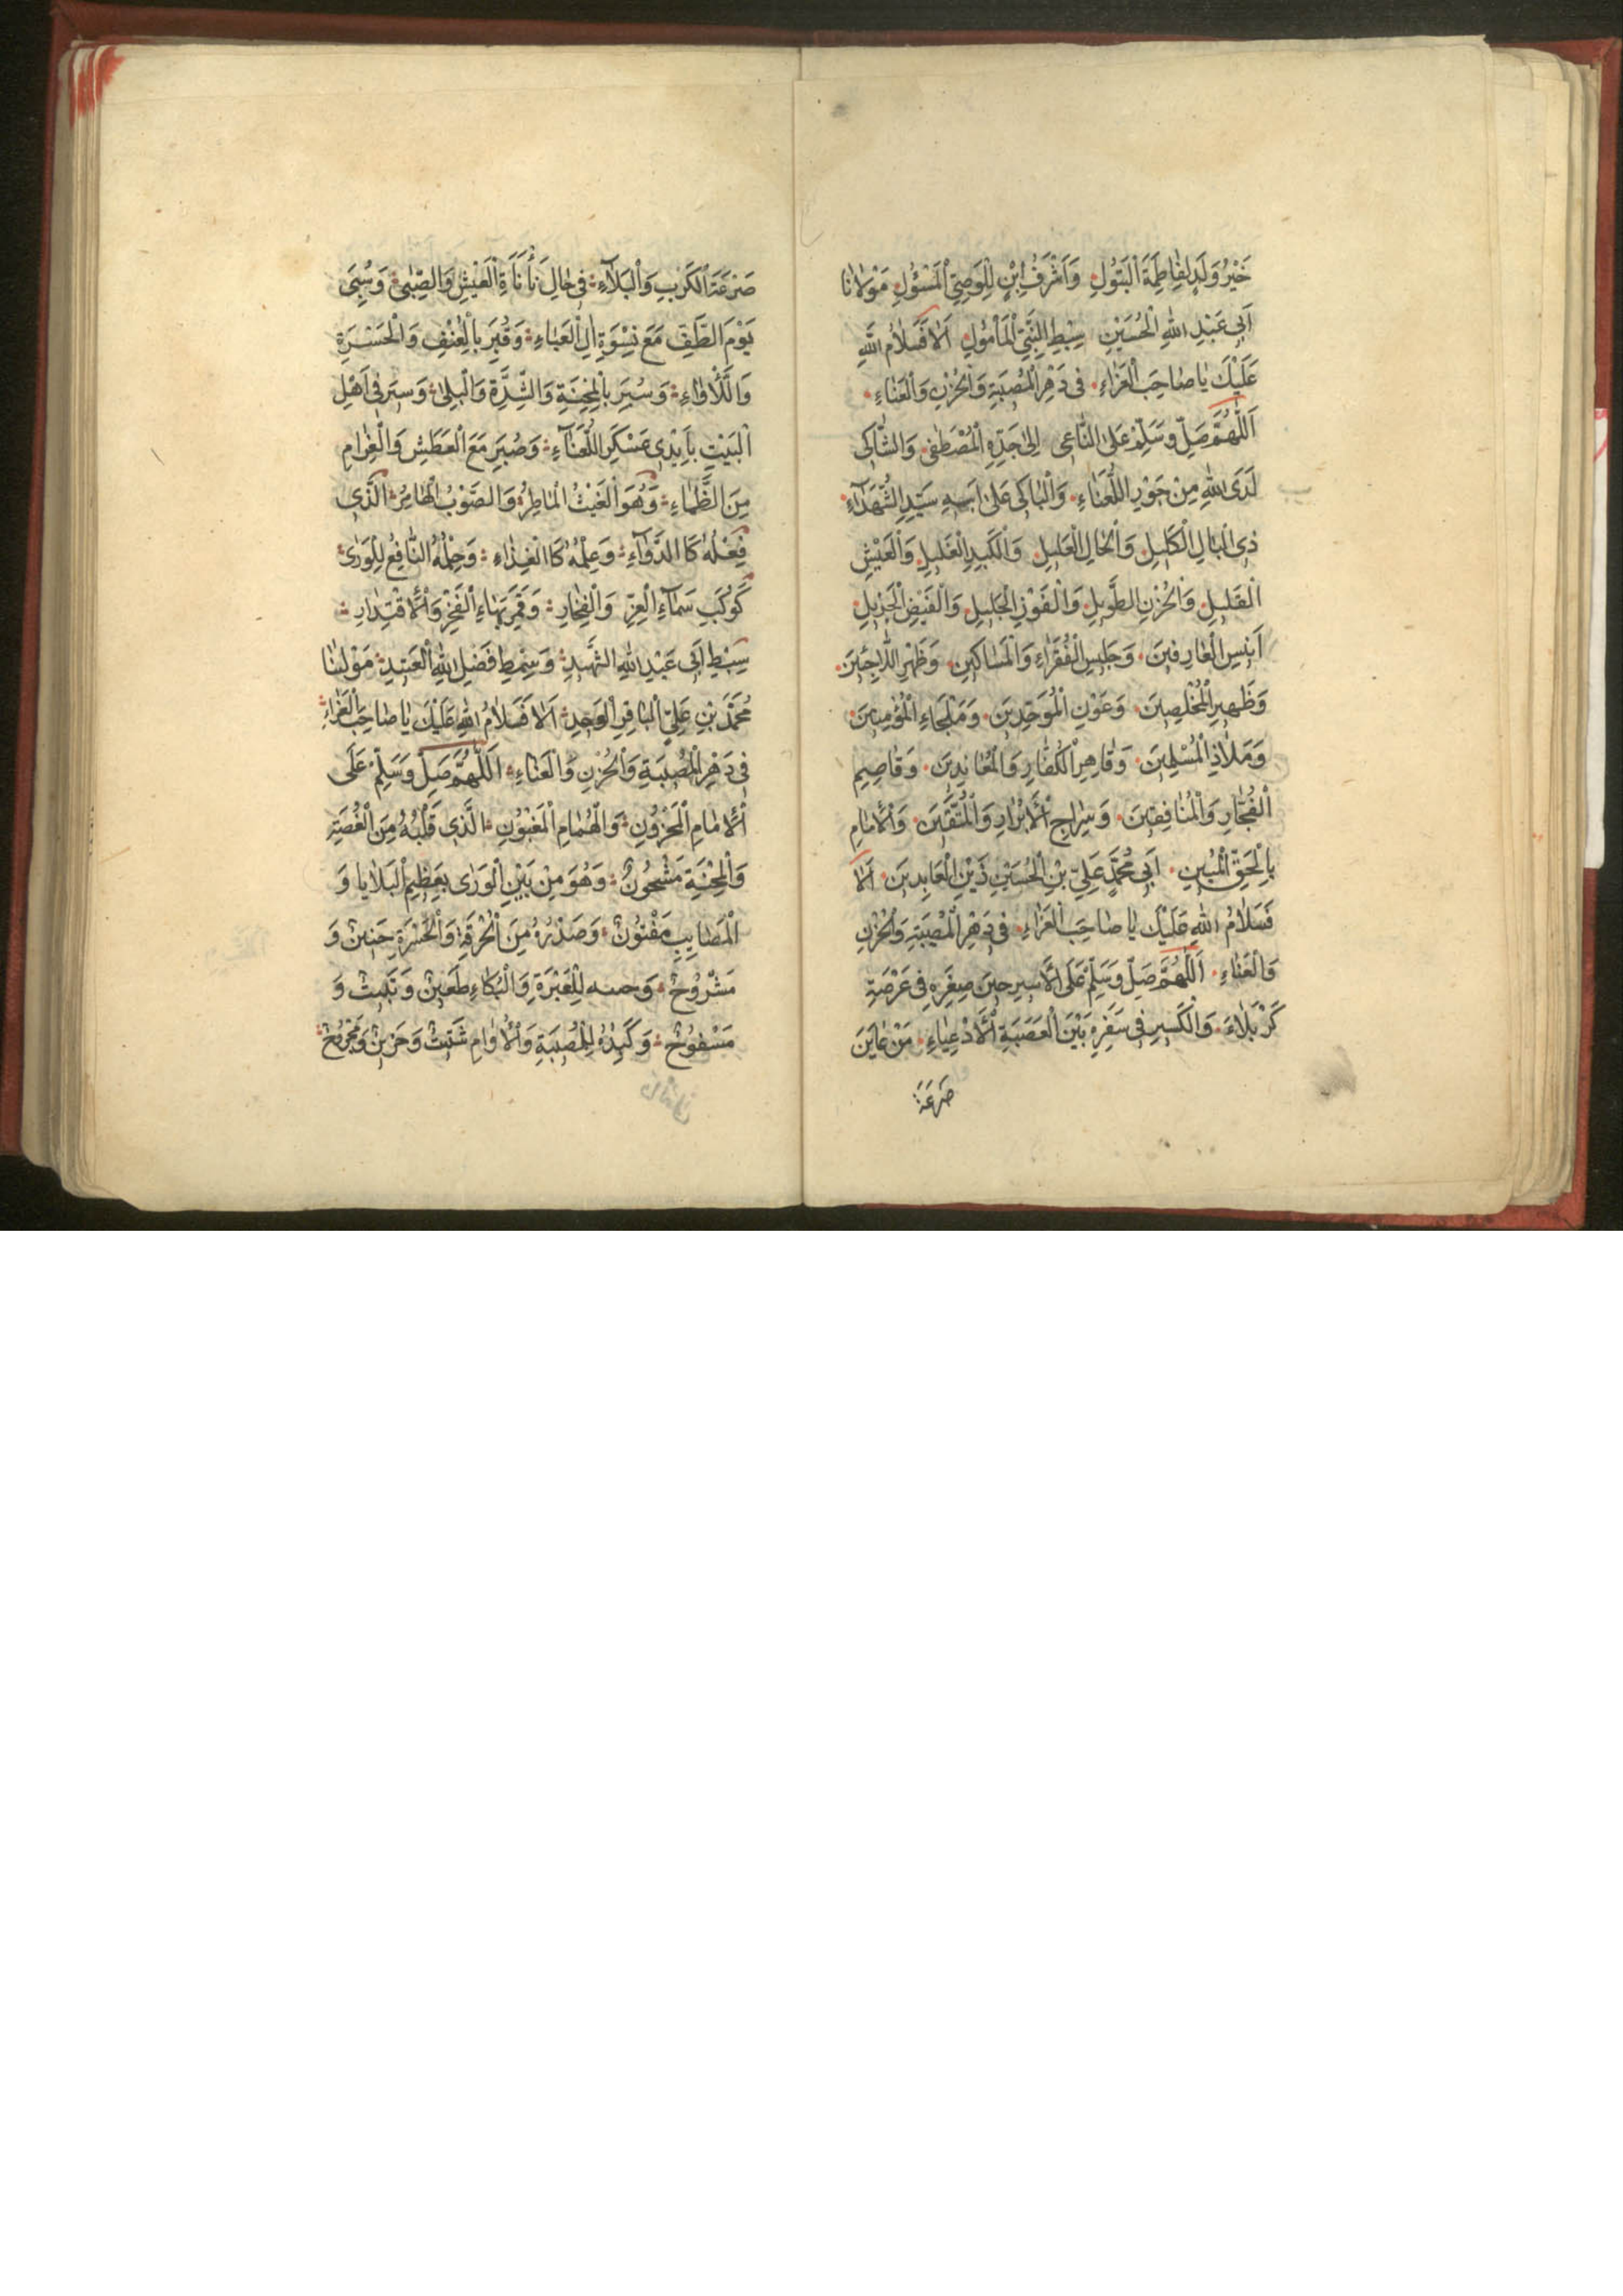 خَيْرُ وَلَدٍ لِفَاطِمَةَ الْبَتُولِ وَاَشْرَفُ ابْنٍ لِلْوَصِيِّ الْمَسْؤُلِ مَوْلَانَا
اَبِى عَبْدِ اللهِ الْحُسَيْنِ سِبْطِ النَّبِيِّ الْمَأْمُولِ اَلَا فَسَلَامُ اللهِ
عَلَيْكَ يَا صَاحِبَ الْعَزَاءِ فِى دَهْرِ الْمُصِيبَةِ وَالْحُزْنِ وَالْعَنَاءِ
اَللّٰهُمَّ صَلِّ وَسَلِّمْ عَلَى النَّاعِى اِلٰى جَدِّهِ الْمُصْطَفٰى وَالشَّاكِى
لَدَى اللهِ مِنْ جَوْرِ اللُّعَنَاءِ وَالْبَاكِى عَلٰى اَبِيهِ سَيِّدِ الشُّهَدَآءِ
ذِى الْبَالِ الْكَلِيلِ وَالْحَالِ الْعَلِيلِ وَالْكَبِدِ الْغَلِيلِ وَالْعَيْشِ
الْقَلِيلِ وَالْحُزْنِ الطَّوِيلِ وَالْفَوْزِ الْجَلِيلِ وَالْفَيْضِ الْجَزِيلِ
اَنِيسِ الْعَارِفِينَ وَجَلِيسِ الْفُقَرَاءِ وَالْمَسَاكِينِ وَظَهْرِ اللَّاجِئِينَ
وَظَهِيرِ الْمُخْلِصِينَ وَعَوْنِ الْمُوَحِّدِينَ وَمَلْجَاءِ الْمُؤْمِنِينَ
وَمَلَاذِ الْمُسْلِمِينَ وَقَاهِرِ الْكُفَّارِ وَالْمُعَانِدِينَ وَقَاصِمِ
الْفُجَّارِ وَالْمُنَافِقِينَ وَسِرَاجِ الْاَبْرَارِ وَالْمُتَّقِينَ وَالْاِمَامِ
بِالْحَقِّ الْمُبِينِ اَبِى مُحَمَّدٍ عَلِيِّ بْنِ الْحُسَيْنِ زَيْنِ الْعَابِدِينَ اَلَا
فَسَلَامُ اللهِ عَلَيْكَ يَا صَاحِبَ الْعَزَاءِ فِى دَهْرِ الْمُصِيبَةِ وَالْحُزْنِ
وَالْعَنَاءِ اَللّٰهُمَّ صَلِّ وَسَلِّمْ عَلَى الْاَسِيرِ حِينَ صِغَرِهِ فِى عَرْصَةِ
كَرْبَلَاءَ وَالْكَسِيرِ فِى سَفَرِهِ بَيْنَ الْعَصَبَةِ الْاَدْعِيَاءِ مَنْ عَايَنَ
صَرْعَةَ
صَرْعَةَ الْكَرْبِ وَالْبَلَآءِ فِى حَالِ نَأْنَأَةِ الْعَيْشِ وَالصِّبٰى وَسُبِىَ
يَوْمَ الطَّفِّ مَعَ نِسْوَةِ اٰلِ الْعَبَاءِ وَقُبِرَ بِالْعُنْفِ وَالْحَسْرَةِ
وَاللَّاْوَاءِ وَسُبِرَ بِالْمِحْنَةِ وَالشِّدَّةِ وَالْبِلٰى وَسِيرَ فِى اَهْلِ
الْبَيْتِ بِاَيْدِى عَسْكَرِ اللُّعَنَآءِ وَصُبِرَ مَعَ الْعَطَشِ وَالْغَرَامِ
مِنَ الظَّمَاءِ وَهُوَ الْغَيْثُ الْمَاطِرُ وَالصَّوْبُ الْهَامِرُ الَّذِى
فِعْلُهُ كَا الدَّوَآءِ وَعِلْمُهُ كَا الْغِذَاءِ وَحِلْمُهُ النَّافِعُ لِلْوَرٰى
كَوْكَبِ سَمَآءِ الْعِزِّ وَالْفِخَارِ وَقَمَرِ بَهَاءِ الْفَخْرِ وَالْاقْتِدَارِ
سِبْطِ اَبِى عَبْدِ اللهِ الشَّهِيدِ وَسِمْطِ فَضْلِ اللهِ الْعَتِيدِ مَوْلَينَا
مُحَمَّدِ بْنِ عَلِيِّ الْبَاقِرِ الْوَحِيدِ اَلَا فَسَلَامُ اللهِ عَلَيْكَ يَا صَاحِبَ الْعَزَاءِ
فِى دَهْرِ الْمُصِيبَةِ وَالْحُزْنِ وَالْعَنَاءِ اَللّٰهُمَّ صَلِّ وَسَلِّمْ عَلَى
الْاِمَامِ الْمَحْزُونِ وَالْهُمَامِ الْمَغْبُونِ الَّذِى قَلْبُهُ مِنَ الْغُصَّةِ
وَالْمِحْنَةِ مَشْحُونٌ وَهُوَ مِنْ بَيْنِ الْوَرٰى بِعَظِيمِ الْبَلَايَا وَ
الْمَصَايِبِ مَفْتُونٌ وَصَدْرُهُ مِنَ الْحُرْقَةِ وَالْحَسْرَةِ حَنِينٌ وَ
مَشْرُوحٌ لِلْعَبْرَةِ وَالْبُكَاءِ طَعِينٌ وَ
مَسْفُوحٌ وَكَبِدُهُ لِلْمُصِيبَةِ شَتِيتٌ وَحَزِينٌ وَمَجْرُوحٌ